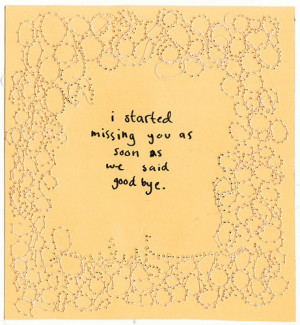 i started
missing you as
soon as
we said
good bye.